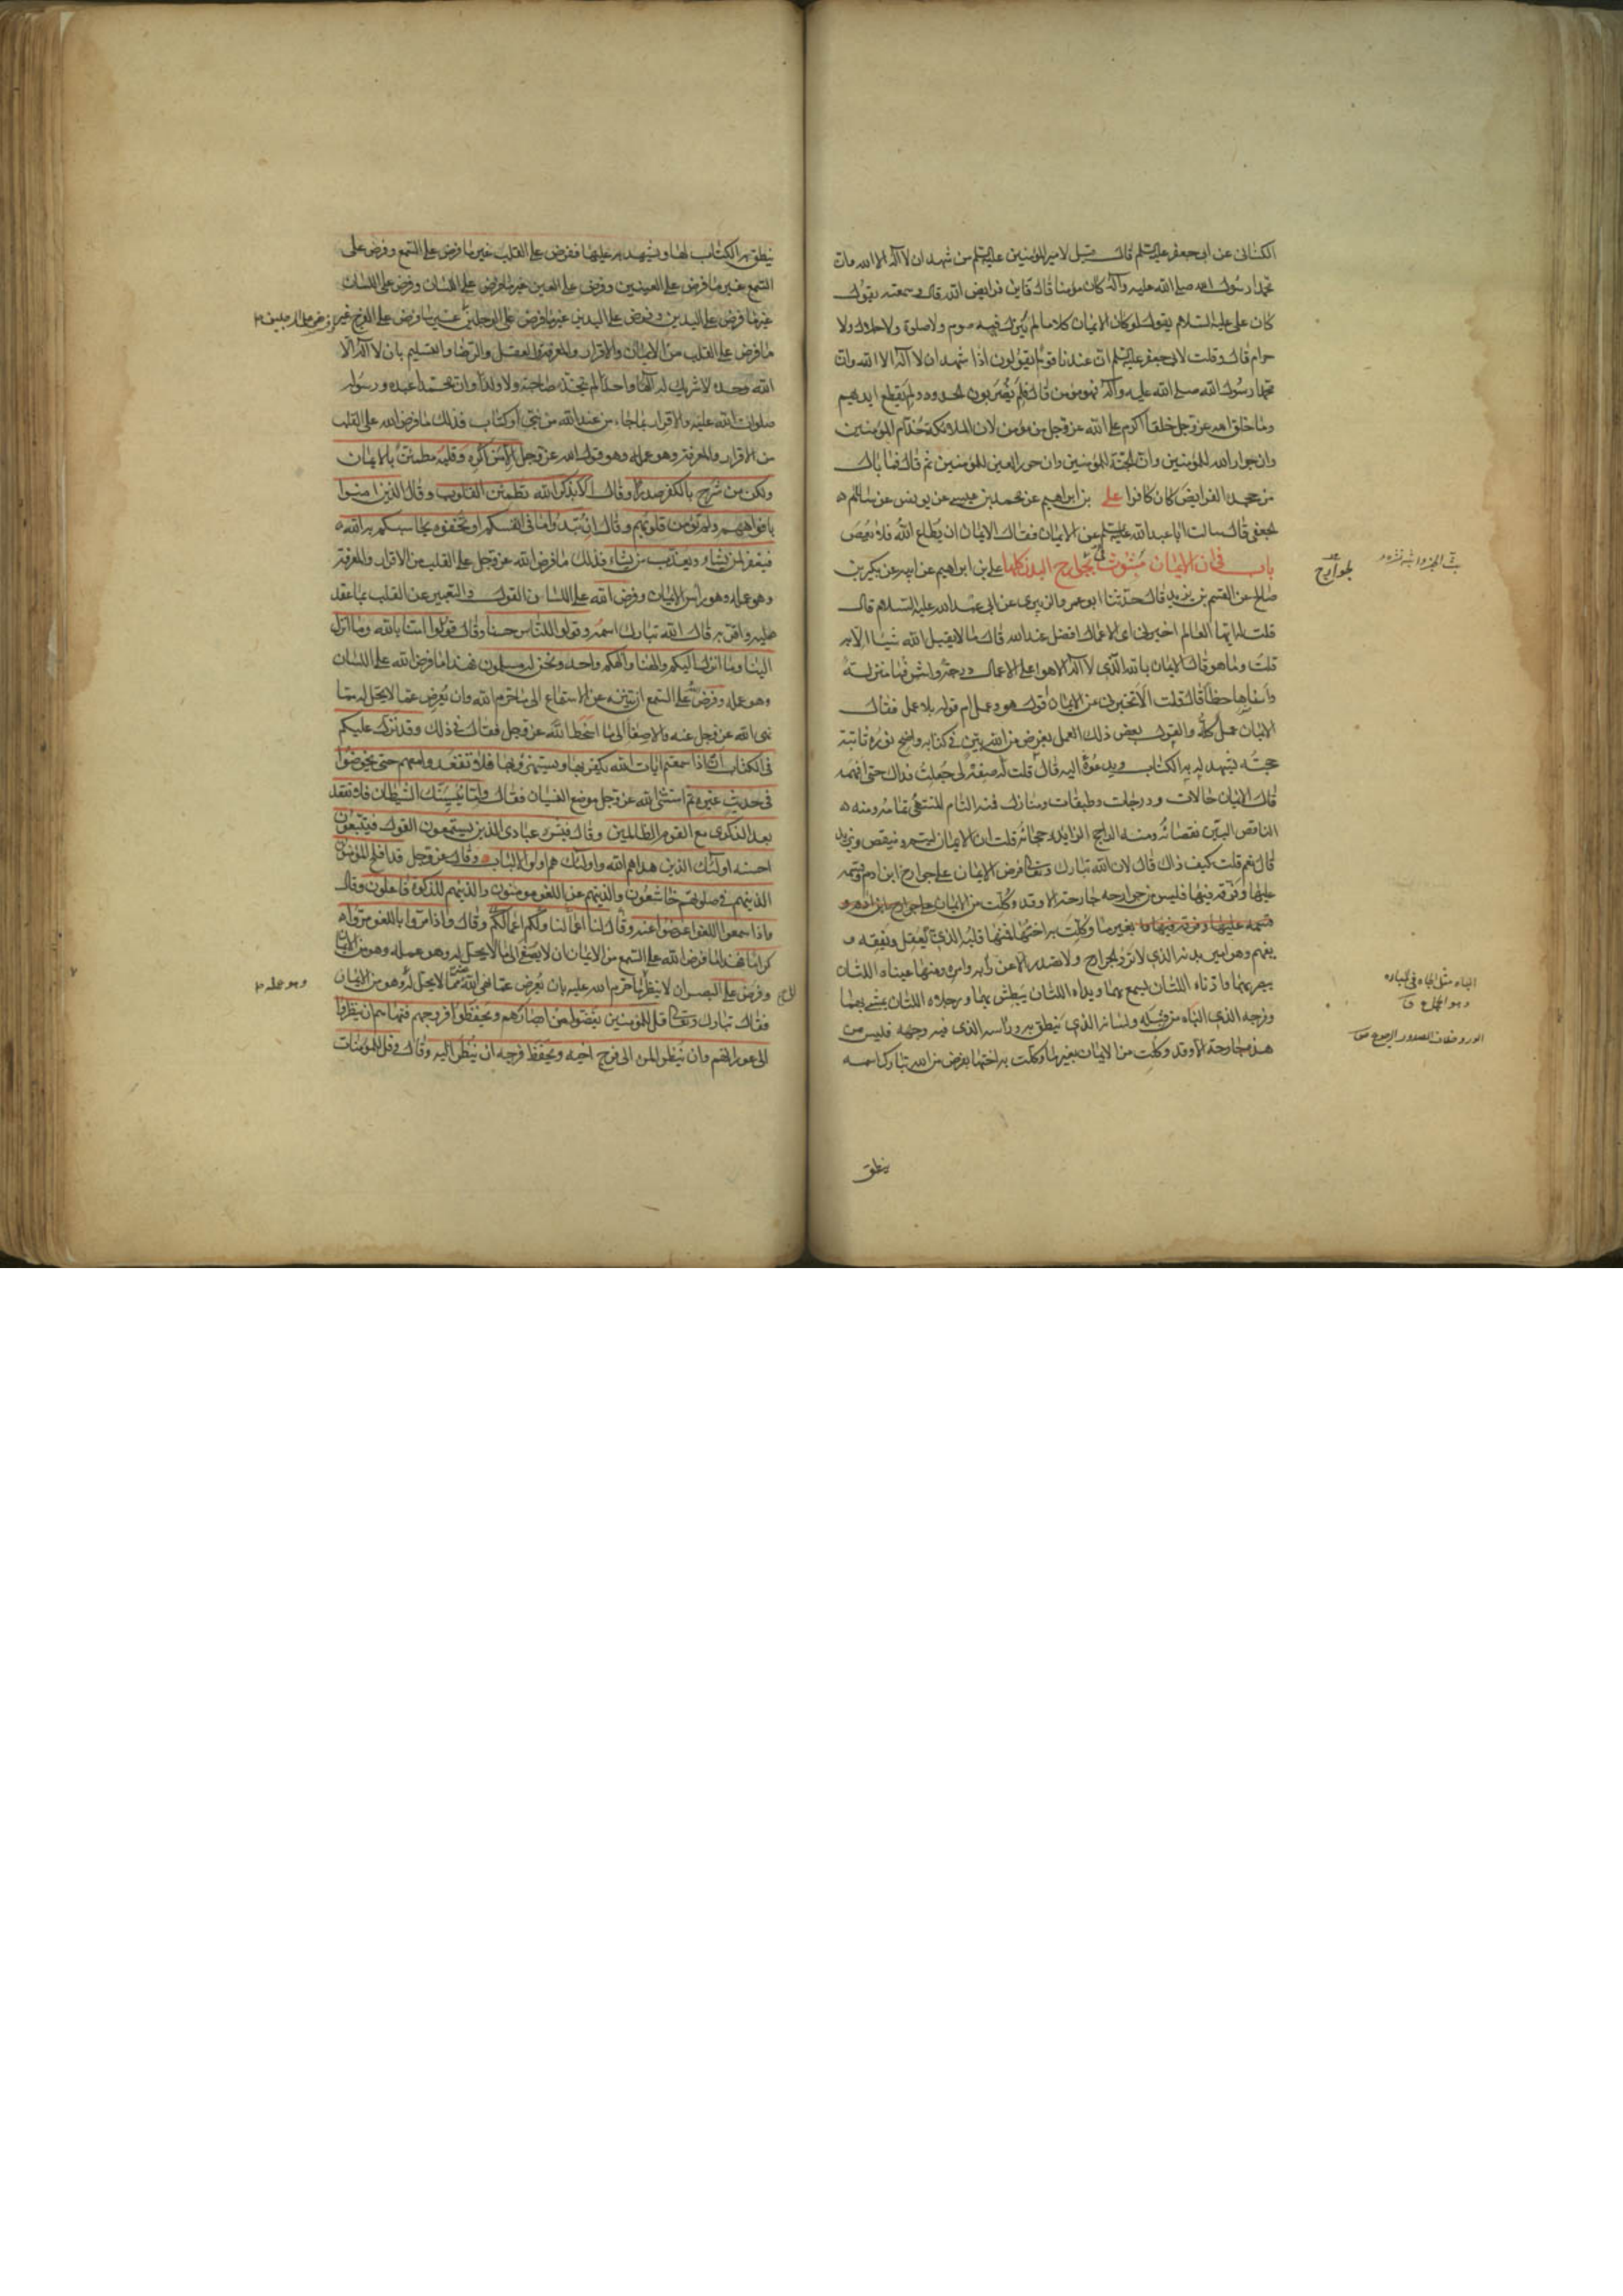 الكناني عن ابي جعفر عليه السلم قال قيل لامير المؤمنين عليه السلم من شهد ان لا اله الا الله وان
محمدا رسول الله صلى الله عليه وآله كان مؤمنا قال فاين فرايض الله قال وسمعته يقول
كان علي عليه السلام يقول لو كان الايمان كلاما لم ينزل فيه صوم ولا صلوة ولا حلال ولا
حرام قال وقلت لابي جعفر عليه السلم ان عندنا قوما يقولون اذا شهد ان لا اله الا الله وان
محمدا رسول الله صلى الله عليه وآله فهو مؤمن قال فلم يضربون الحدود ولم يقطع ايديهم
وما خلق الله عز وجل خلقا اكرم على الله عز وجل من مؤمن لان الملائكة خدام المؤمنين
وان جوار الله للمؤمنين وان الجنة للمؤمنين وان حور العين للمؤمنين ثم قال فما بال
من جحد الفرايض كان كافرا علي بن ابراهيم عن محمد بن عيسى عن يونس عن سلام
الجعفي قال سالت ابا عبد الله عليه السلم عن الايمان فقال الايمان ان يطاع الله فلا يعصى
باب في ان الايمان مبثوث لجوارح البدن كلها علي بن ابراهيم عن ابيه عن بكر بن
صالح عن القسم بن بريد قال حدثنا ابو عمرو الزبيري عن ابي عبد الله عليه السلام قال
قلت له ايها العالم اخبرني اي الاعمال افضل عند الله قال ما لا يقبل الله شيا الا به
قلت وما هو قال الايمان بالله الذي لا اله الا هو اعلى الاعمال درجة واشرفها منزلة
واسناها حظا قال قلت الا تخبرني عن الايمان اقول هو وعمل ام قول بلا عمل فقال
الايمان عمل كله والقول بعض ذلك العمل بفرض من الله بين في كتابه واضح نوره ثابتة
حجته يشهد له به الكتاب ويدعوه اليه قال قلت له صفه لي جعلت فداك حتى افهمه
قال الايمان حالات ودرجات وطبقات ومنازل فمنه التام المنتهى تمامه ومنه
الناقص البين نقصانه ومنه الراجح الزايد رجحانه قلت ان الايمان ليتم وينقص ويزيد
قال نعم قلت كيف ذاك قال لان الله تبارك وتعالى فرض الايمان على جوارح ابن ادم وقسمه
عليها وفرقه فيها فليس من جوارحه جارحة الا وقد وكلت من الايمان
بغير ما وكلت به اختها فمنها قلبه الذي به يعقل ويفقه و
يفهم وهو امير بدنه الذي لا ترد الجوارح ولا تصدر الا عن رايه وامره ومنها عيناه اللتان
يبصر بهما واذناه اللتان يسمع بهما ويداه اللتان يبطش بهما ورجلاه اللتان يمشي بهما
وفرجه الذي الباه من قبله ولسانه الذي ينطق به وراسه الذي فيه وجهه فليس من
هذه جارحة الا وقد وكلت من الايمان بغير ما وكلت به اختها بفرض من الله تبارك اسمه
ينطق
الباه مثل الجاه
ينطق به الكتاب لها ويشهد به عليها ففرض على القلب غير ما فرض على السمع وفرض على
السمع غير ما فرض على العينين وفرض على العين غير ما فرض على اللسان وفرض على اللسان
غير ما فرض على اليدين وفرض على اليدين غير ما فرض على الرجلين غير ما فرض على الفرج
ما فرض على القلب من الايمان والاقرار والمعرفة والعقد والرضا والتسليم بان لا اله الا
الله وحده لا شريك له الها واحدا لم يتخذ صاحبة ولا ولدا وان محمدا عبده ورسوله
صلوات الله عليه والاقرار بما جاء من عند الله من نبي او كتاب فذلك ما فرض الله على القلب
من الاقرار والمعرفة وهو عمله وهو قول الله عز وجل الا من اكره وقلبه مطمئن بالايمان
ولكن من شرح بالكفر صدرا وقال الا بذكر الله تطمئن القلوب وقال الذين امنوا
بافواههم ولم تؤمن قلوبهم وقال ان تبدوا ما في انفسكم او تخفوه يحاسبكم به الله
فيغفر لمن يشاء ويعذب من يشاء فذلك ما فرض الله عز وجل على القلب من الاقرار والمعرفة
وهو عمله وهو راس الايمان وفرض الله على اللسان القول والتعبير عن القلب بما عقد
عليه واقر به قال الله تبارك اسمه وقولوا للناس حسنا وقال قولوا امنا بالله وما انزل
الينا وما انزل اليكم والهنا والهكم واحد ونحن له مسلمون فهذا ما فرض الله على اللسان
وهو عمله وفرض على السمع ان يتنزه عن الاستماع الى ما حرم الله وان يعرض عما لا يحل له مما
نهى الله عز وجل عنه والاصغاء الى ما اسخط الله عز وجل فقال في ذلك وقد نزل عليكم
في الكتاب ان اذا سمعتم ايات الله يكفر بها ويستهزئ بها فلا تقعدوا معهم حتى يخوضوا
في حديث غيره ثم استثنى الله عز وجل موضع النسيان فقال واما ينسينك الشيطان فلا تقعد
بعد الذكرى مع القوم الظالمين وقال فبشر عبادي الذين يستمعون القول فيتبعون
احسنه اولئك الذين هداهم الله واولئك هم اولوا الالباب وقال عز وجل قد افلح المؤمنون
الذينهم في صلوتهم خاشعون والذينهم عن اللغو معرضون والذينهم للزكوة فاعلون وقال
واذا سمعوا اللغو اعرضوا عنه وقالوا لنا اعمالنا ولكم اعمالكم وقال واذا مروا باللغو مروا
كراما فهذا ما فرض الله على السمع من الايمان ان لا يصغي الى ما لا يحل له وهو عمله وهو من الايمان
وفرض على البصر ان لا ينظر الى ما حرم الله عليه وان يعرض عما نهى الله عنه مما لا يحل له وهو من الايمان
وهو عمله
فقال تبارك وتعالى قل للمؤمنين يغضوا من ابصارهم ويحفظوا فروجهم فنهاهم ان ينظروا
الى عوراتهم وان ينظر المرء الى فرج اخيه ويحفظ فرجه ان ينظر اليه وقال وقل للمؤمنات